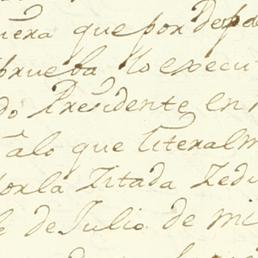 que por
prueba lo execu
do Presidente en
alo que literalm
por la Zitada Zedu
de Julio de mi